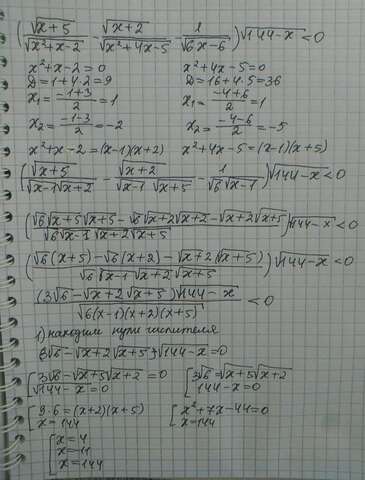 (√(x+5)/√(x²+x-2) - √(x+2)/√(x²+4x-5) - 1/√(6x-6))√(144-x) < 0
x²+x-2=0 x²+4x-5=0
D=1+4·2=9 D=16+4·5=36
x₁=(-1+3)/2=1 x₁=(-4+6)/2=1
x₂=(-1-3)/2=-2 x₂=(-4-6)/2=-5
x²+x-2=(x-1)(x+2) x²+4x-5=(x-1)(x+5)
(√(x+5)/(√(x-1)√(x+2)) - √(x+2)/(√(x-1)√(x+5)) - 1/(√6√(x-1)))√(144-x) < 0
((√6√(x+5)√(x+5) - √6√(x+2)√(x+2) - √(x+2)√(x+5))/(√6√(x-1)√(x+2)√(x+5)))√(144-x) < 0
((√6(x+5) - √6(x+2) - √(x+2)√(x+5))/(√6√(x-1)√(x+2)√(x+5)))√(144-x) < 0
(3√6 - √(x+2)√(x+5))√(144-x)/√(6(x-1)(x+2)(x+5)) < 0
1) находим нули числителя
(3√6 - √(x+2)√(x+5))√(144-x) = 0
[3√6 - √(x+5)√(x+2) = 0 [3√6 = √(x+5)√(x+2)
√(144-x) = 0 144-x=0
[9·6=(x+2)(x+5) [x²+7x-44=0
x=144 x=144
[x=4
x=-11
x=144